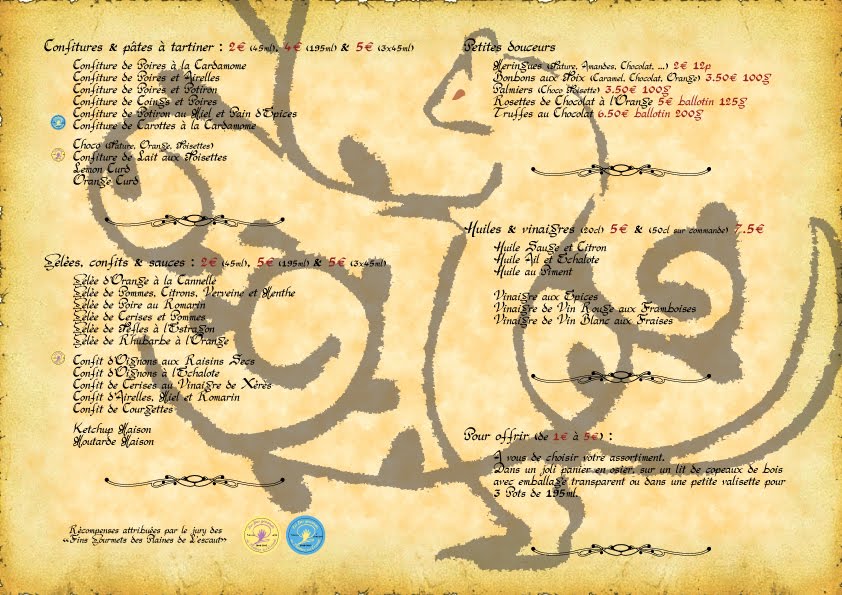 Confitures & pâtes à tartiner : 2€ (45ml), 4€ (195ml) & 5€ (3x45ml)
Confiture de Poires à la Cardamome
Confiture de Poires et Airelles
Confiture de Poires et Potiron
Confiture de Coings et Poires
Confiture de Potiron au Miel et Pain d'Epices
Confiture de Carottes à la Cardamome
Choco (Nature, Orange, Noisettes)
Confiture de Lait aux Noisettes
Lemon Curd
Orange Curd
Gelées, confits & sauces : 2€ (45ml), 5€ (195ml) & 5€ (3x45ml)
Gelée d'Orange à la Cannelle
Gelée de Pommes, Citrons, Verveine et Menthe
Gelée de Poire au Romarin
Gelée de Cerises et Pommes
Gelée de Nèfles à l'Estragon
Gelée de Rhubarbe à l'Orange
Confit d'Oignons aux Raisins Secs
Confit d'Oignons à l'Echalote
Confit de Cerises au Vinaigre de Xérès
Confit d'Airelles, Miel et Romarin
Confit de Courgettes
Ketchup Maison
Moutarde Maison
Récompenses attribuées par le jury des
"Fins Gourmets des Plaines de L'escaut"
Petites douceurs
Meringues (Nature, Amandes, Chocolat, ...) 2€ 12p
Bonbons aux Noix (Caramel, Chocolat, Orange) 3.50€ 100g
Palmiers (Choco Noisette) 3.50€ 100g
Rosettes de Chocolat à l'Orange 5€ ballotin 125g
Truffes au Chocolat 6.50€ ballotin 200g
Huiles & vinaigres (20cl) 5€ & (50cl sur commande) 7.5€
Huile Sauge et Citron
Huile Ail et Echalote
Huile au Piment
Vinaigre aux Epices
Vinaigre de Vin Rouge aux Framboises
Vinaigre de Vin Blanc aux Fraises
Pour offrir (de 1€ à 5€) :
A vous de choisir votre assortiment.
Dans un joli panier en osier, sur un lit de copeaux de bois
avec emballage transparent ou dans une petite valisette pour
3 Pots de 195ml.